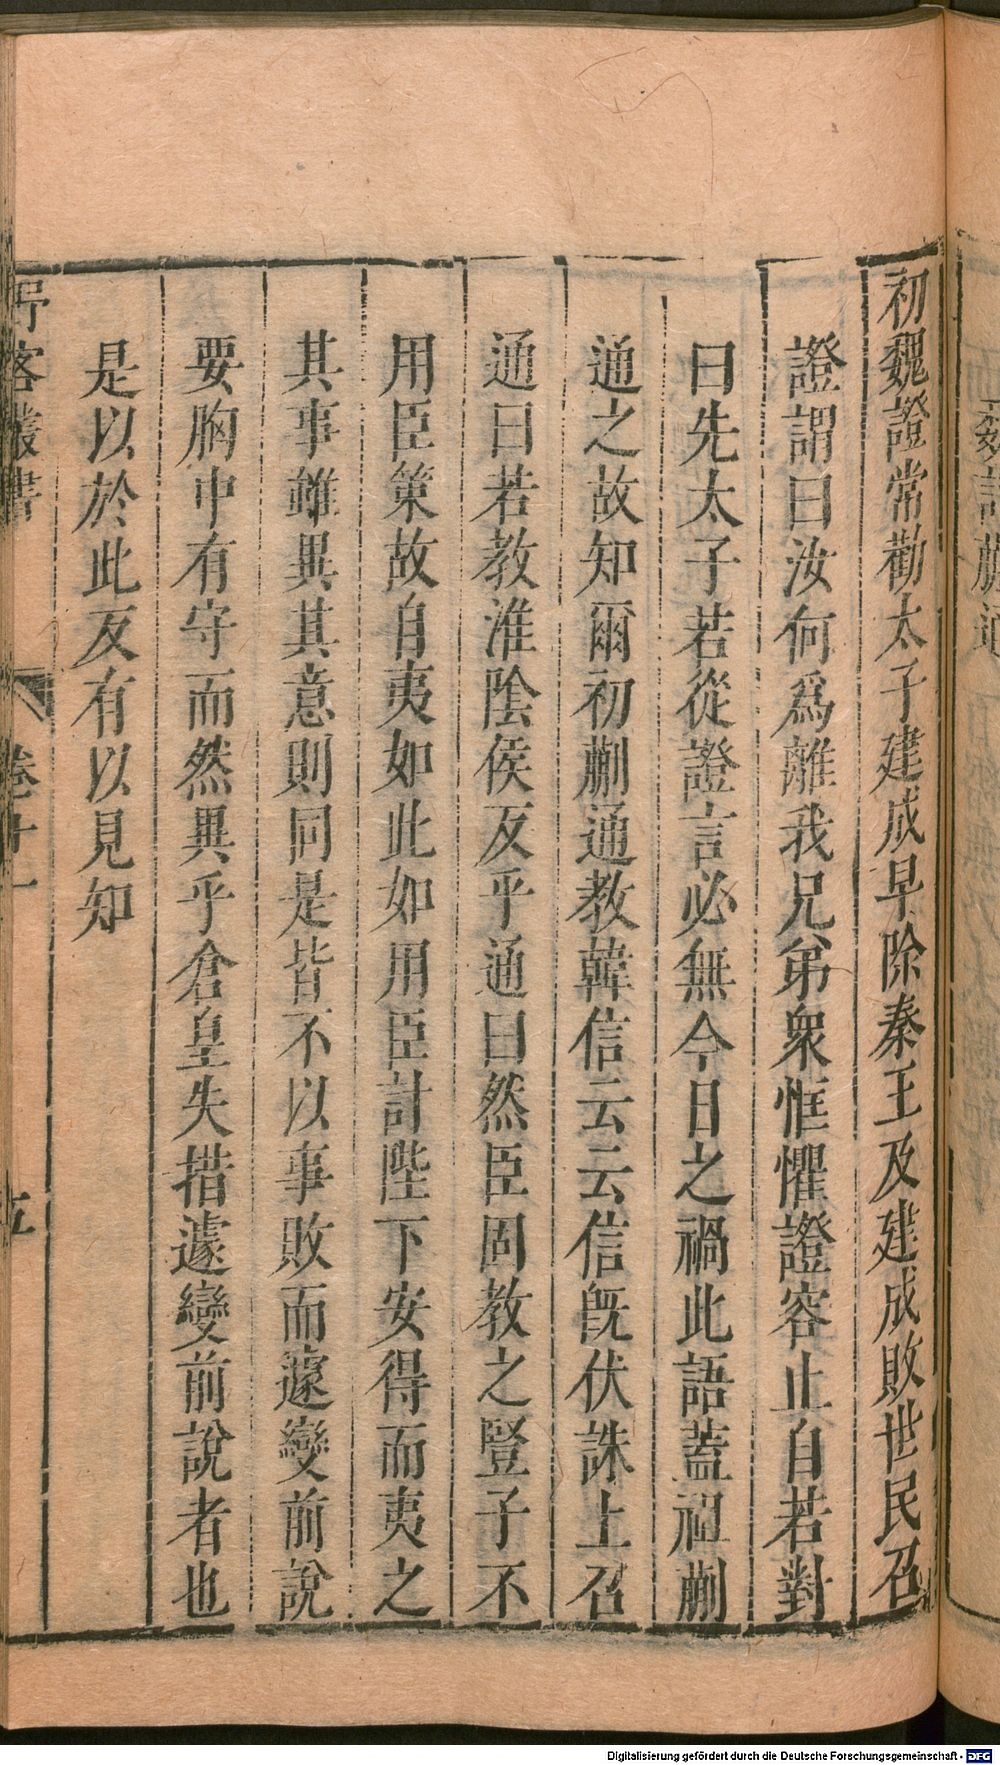 初魏證常勸太子建成早除秦王及建成敗世民召
證謂曰汝何爲離我兄弟衆恇懼證容止自若對
曰先太子若從證言必無今日之禍此語蓋祖蒯
通之故知爾初蒯通教韓信云云信旣伏誅上召
通曰若教淮陰侯反乎通曰然臣固教之豎子不
用臣策故自夷如此如用臣計陛下安得而夷之
其事雖異其意則同是皆不以事敗而遽變前說
要胸中有守而然異乎倉皇失措遽變前說者也
是以於此反有以見知
客叢書
卷十一
五
Digitalisierung gefördert durch die Deutsche Forschungsgemeinschaft - DFG